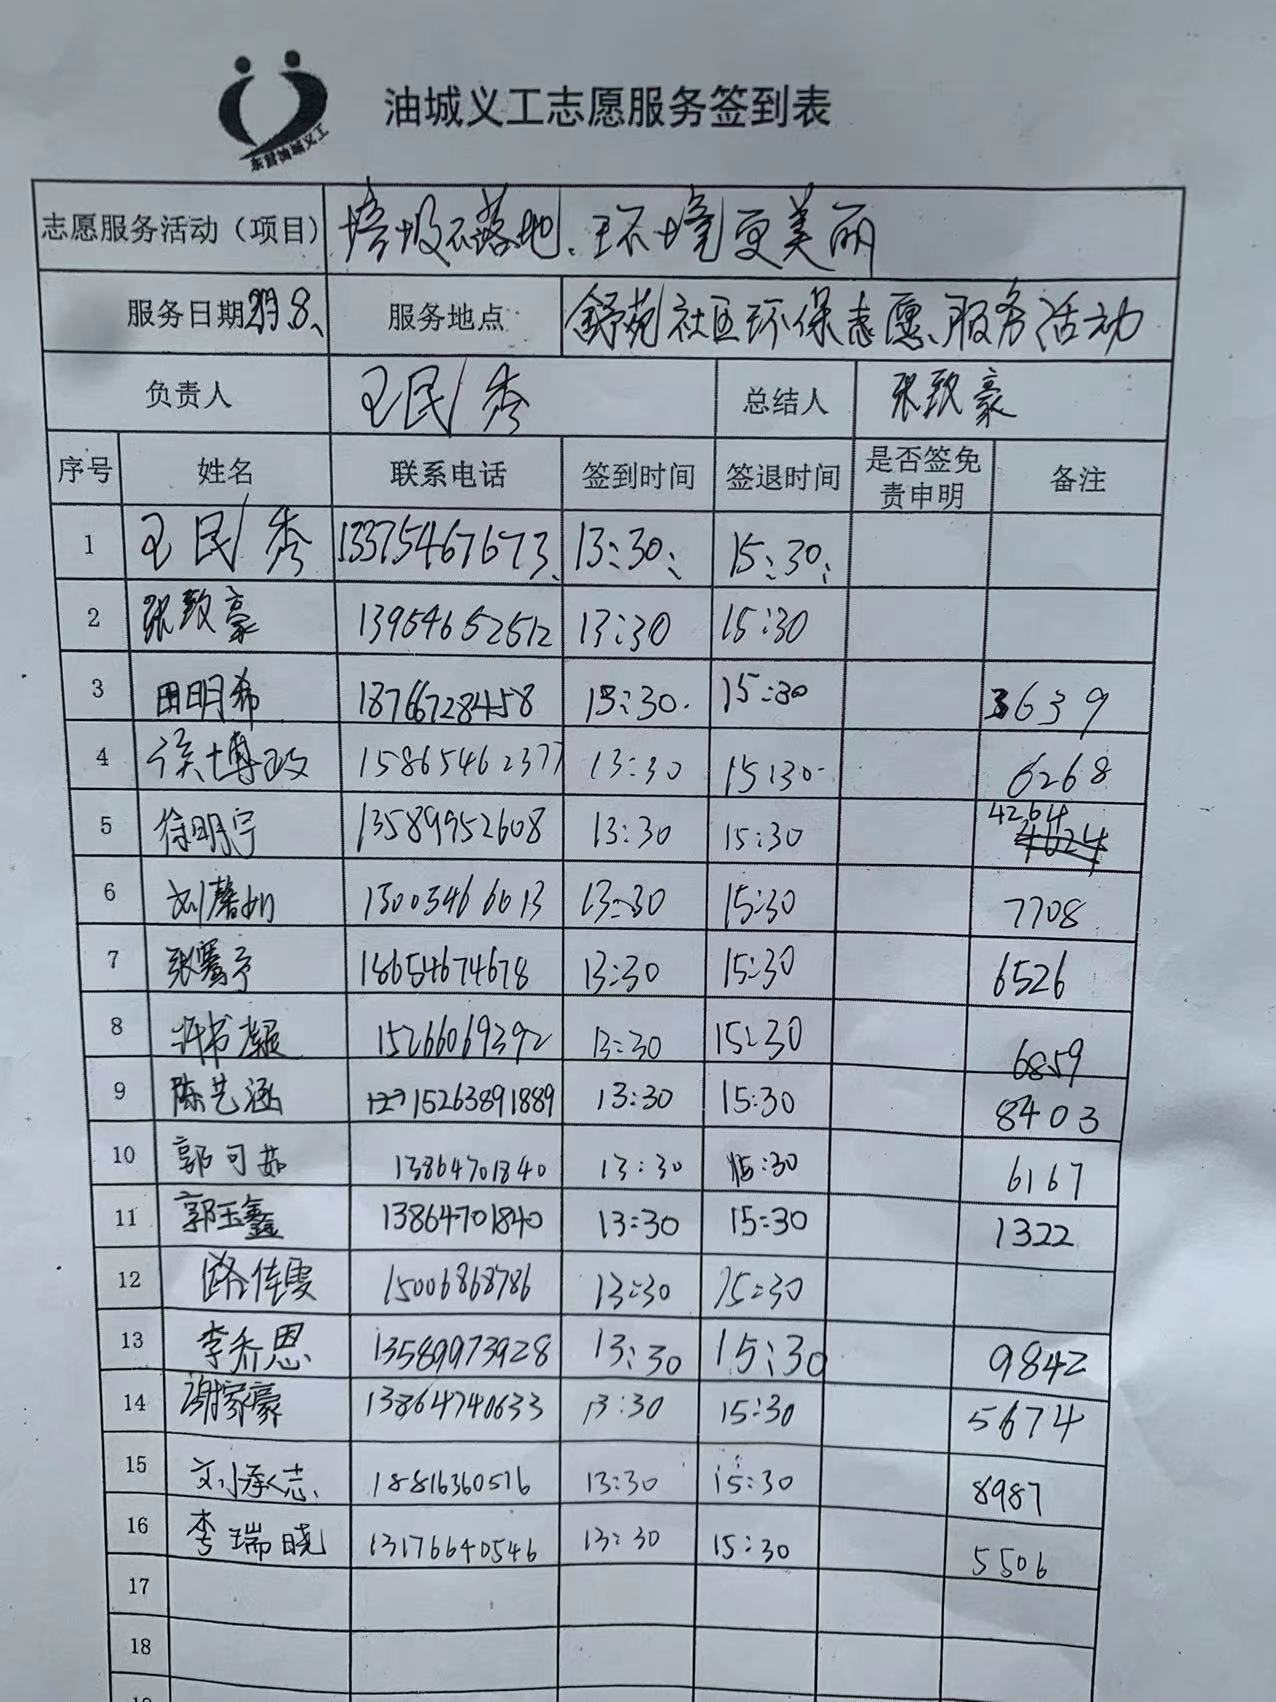 东营油城义工
油城义工志愿服务签到表
志愿服务活动（项目） 垃圾不落地、环境更美丽
服务日期 8、 服务地点 舒苑社区环保志愿服务活动
负责人 王民秀 总结人 张致豪
序号 姓名 联系电话 签到时间 签退时间 是否签免责申明 备注
1 王民秀 13375467673、 13:30、 15:30、
2 张致豪 13954652512 13:30 15:30
3 田明希 18766728458 13:30. 15:30 3639
4 侯博政 15865462377 13:30 15:30 6268
5 徐明宇 13589952608 13:30 15:30 4264
6 刘馨如 15003466013 13:30 15:30 7708
7 张骞予 18654674678 13:30 15:30 6526
8 许书颜 15266069392 13:30 15:30 6859
9 陈艺涵 15263891889 13:30 15:30 8403
10 郭可茹 13864701840 13:30 15:30 6167
11 郭玉鑫 13864701840 13:30 15:30 1322
12 路佳雯 15006868786 13:30 15:30
13 李乔恩 13589973928 13:30 15:30 9842
14 谢家豪 13864740633 13:30 15:30 5674
15 刘承志 18816360516 13:30 15:30 8987
16 李瑞晓 13176640546 13:30 15:30 5506
17
18